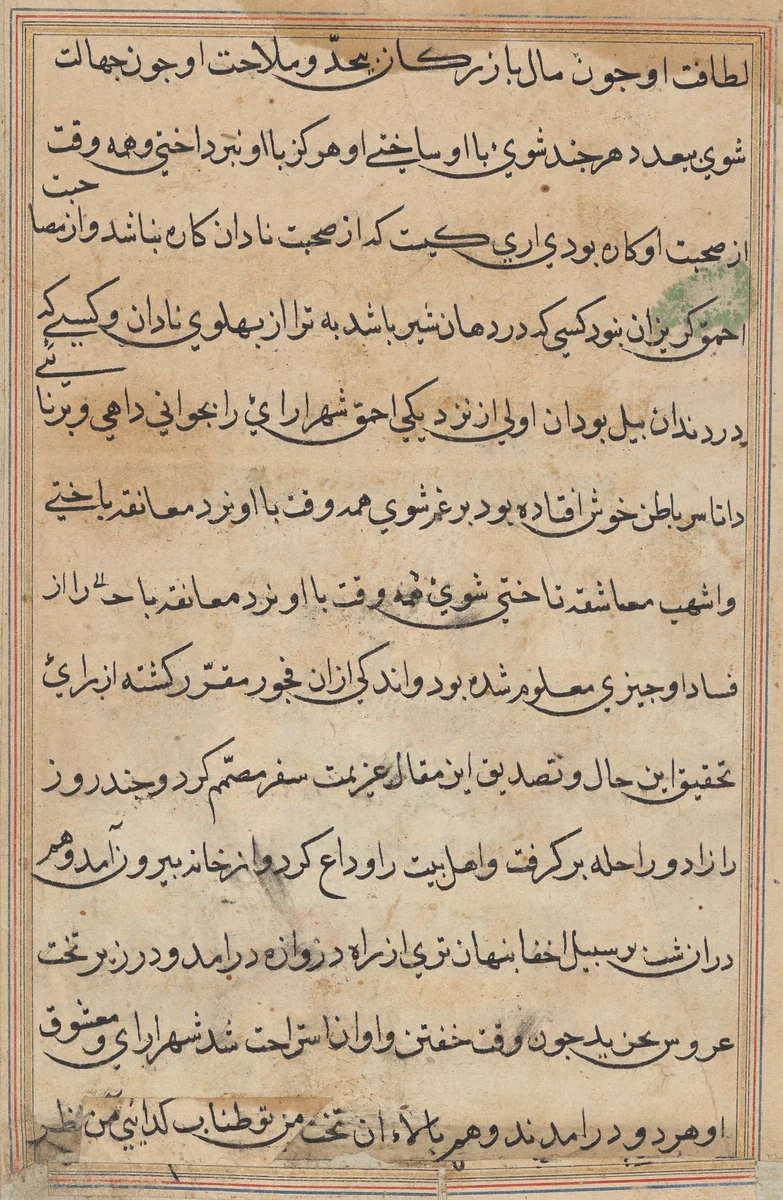 لطافت او جون مال بازرکان بیحدّ و ملاحت او جون جهالت
شوي بیعدد هر جند شوي با او ساختي او هرکز با او نبرداختي و همه وقت
از صحبت او کاره بودي اري کیست که از صحبت نادان کاره نباشد و از مصاحبت
احمق کریزان نبود کسي که در دهان شیر باشد به ترا از بهلوي نادان و کسیے که
در دندان بیل بودان اولي از نزدیکي احمق شهراراي را بجواني داهي و برنائیے
دانا سر باطن خوش افتاده بود برغم شوي همه وقت با او نرد معانقه باختے
و اشهب معاشقه تاختي شوي همه وقت با او نرد معانقه با حالے را از
فساد او جیزي معلوم شده بود و اندکي ازان فجور مقرّر کشته از براي
تحقیق این حال و تصدیق این مقال عزیمت سفر مصمّم کرد و جند روز
را زاد و راحله برکرفت و اهل بیت را وداع کرد و از خانه بیرون آمد و هم
دران شب بر سبیل اخفا بنهان تري از راه دروازه درامد و در زیر تخت
عروس بخزید جون وقت خفتن و اوان استراحت شد شهراراي و معشوق
او هر دو درامدند و هم بالاء ان تخت من تو طناب کدائي من نظر